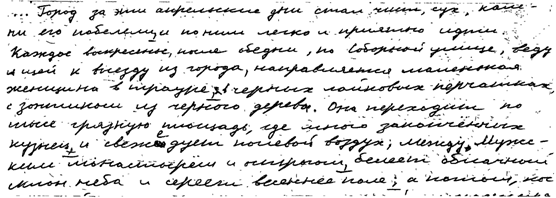 ... Город за эти апрельские дни стал чист, сух, кам-
ни его побелели и по ним легко и приятно идти.
Каждое воскресенье, после обедни, по Соборной улице, веду
щей к выезду из города, направляется маленькая
женщина в трауре, в черных лайковых перчатках,
с зонтиком из черного дерева. Она переходит по
шоссе грязную площадь, где много закопченных
кузнец, и свеже дует полевой воздух; между, Муж-
ским монастырем и острогом, белеет облачный
склон неба и сереет весеннее поле; а потом,